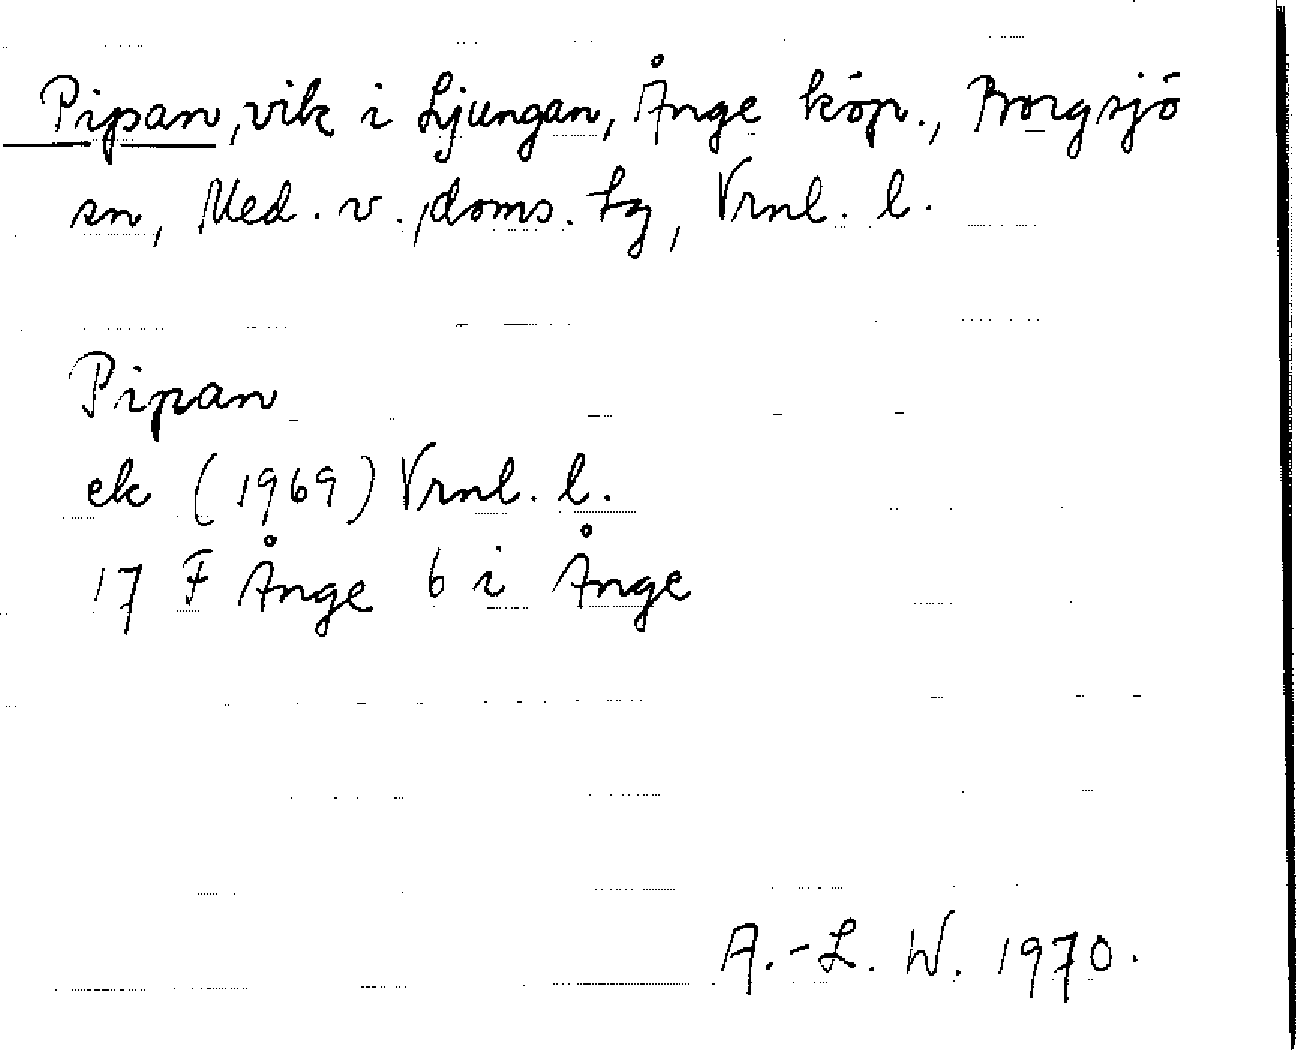 Pipan, vik i Ljungan, Ånge köp., Borgsjö
sn, Med. v., doms. tg, Vrnl. l.
Pipan
ek (1969) Vrnl. l.
17 F Ånge 6 i Ånge
A.-L. W. 1970.